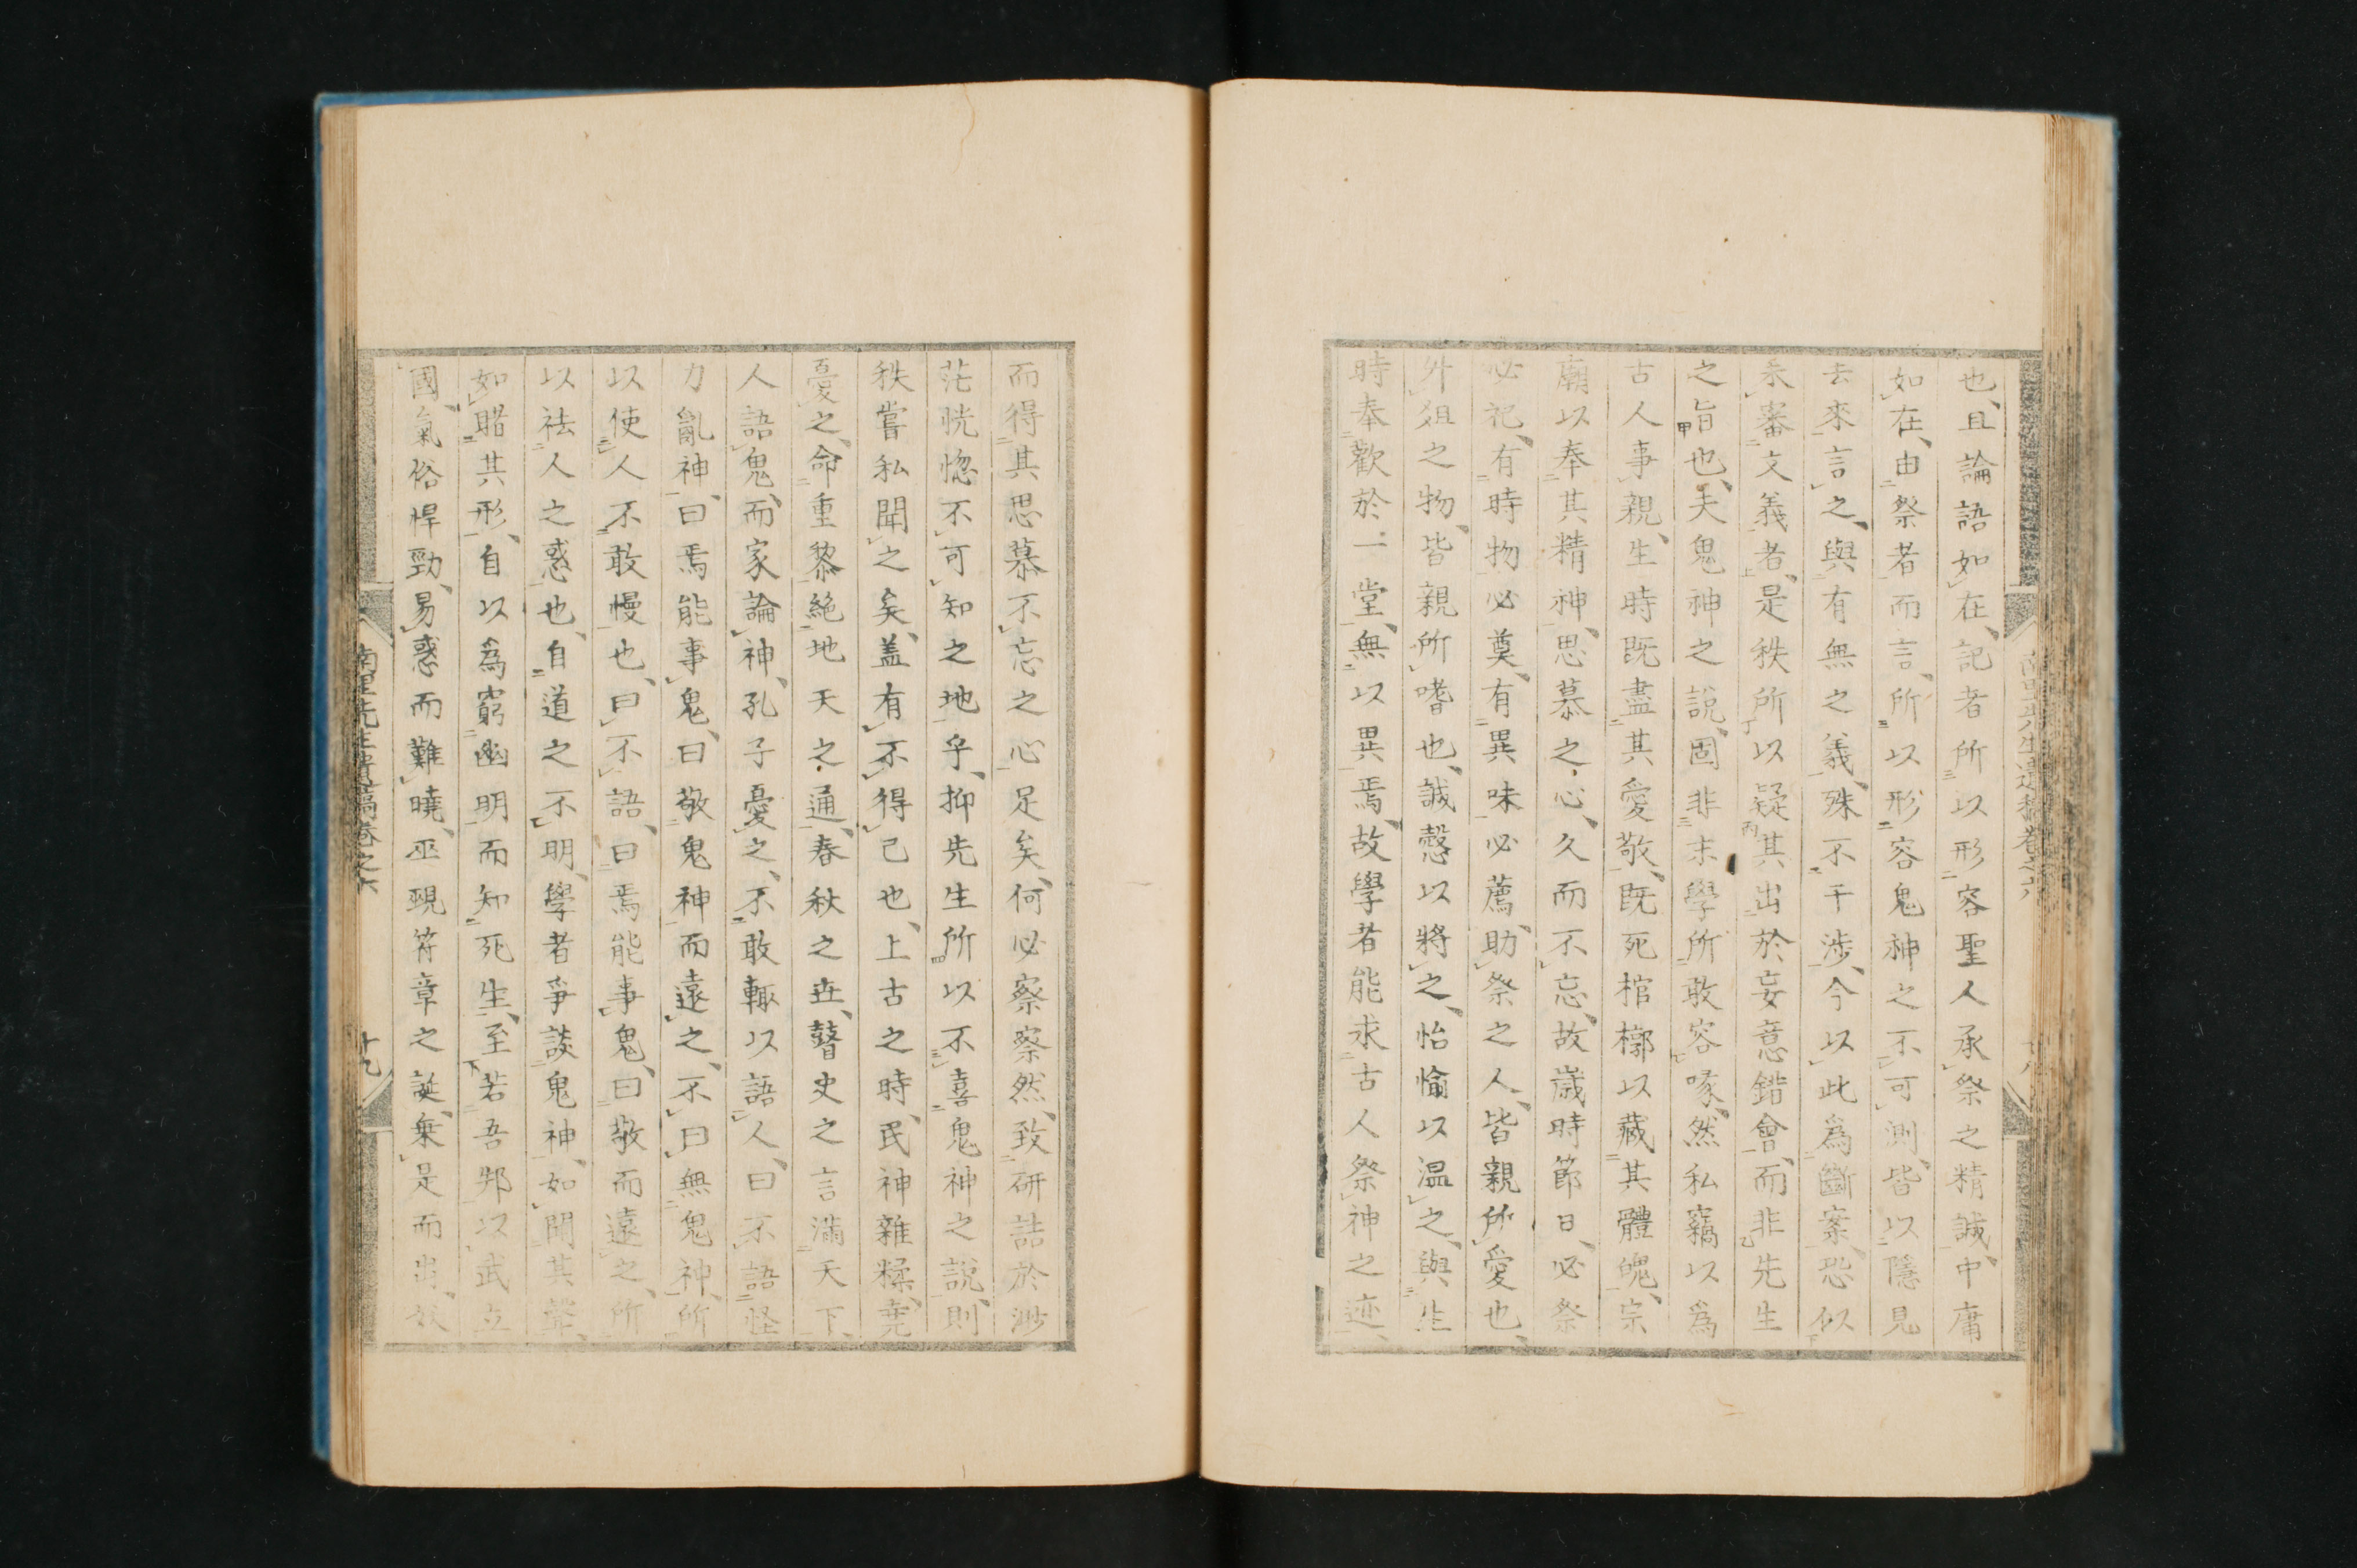 也、且論語如在、記者所以形容聖人承祭之精誠、中庸
如在、由祭者而言、所以形容鬼神之不可測、皆以隱見
去來言之、與有無之義、殊不干渉、今以此爲斷案、恐似
未審文義者、是秩所以疑其出於妄意錯會、而非先生
之旨也、夫鬼神之說、固非末學所敢容喙、然私竊以爲
古人事親、生時既盡其愛敬、既死棺槨以藏其體魄、宗
廟以奉其精神、思慕之心、久而不忘、故歲時節日、必祭
必祀、有時物必奠、有異味必薦、助祭之人、皆親所愛也、
外俎之物、皆親所嗜也、誠愨以將之、怡愉以温之、與生
時奉歡於一堂、無以異焉、故學者能求古人祭神之迹、
南里先生遺稿卷之六
十八
而得其思慕不忘之心足矣、何必察察然、致研詰於渺
茫恍惚不可知之地乎、抑先生所以不喜鬼神之說、則
秩嘗私聞之矣、盖有不得已也、上古之時、民神雜糅、堯
憂之、命重黎絶地天之通、春秋之世、瞽史之言滿天下、
人語鬼、而家論神、孔子憂之、不敢輙以語人、曰不語怪
力亂神、曰焉能事鬼、曰敬鬼神而遠之、不曰無鬼神、所
以使人不敢慢也、曰不語、曰焉能事鬼、曰敬而遠之、所
以祛人之惑也、自道之不明、學者爭談鬼神、如聞其聲、
如睹其形、自以爲窮幽明而知死生、至若吾邦以武立
國、氣俗悍勁、易惑而難曉、巫覡符章之誕、乗是而出、妖
南里先生遺稿卷之六
十九